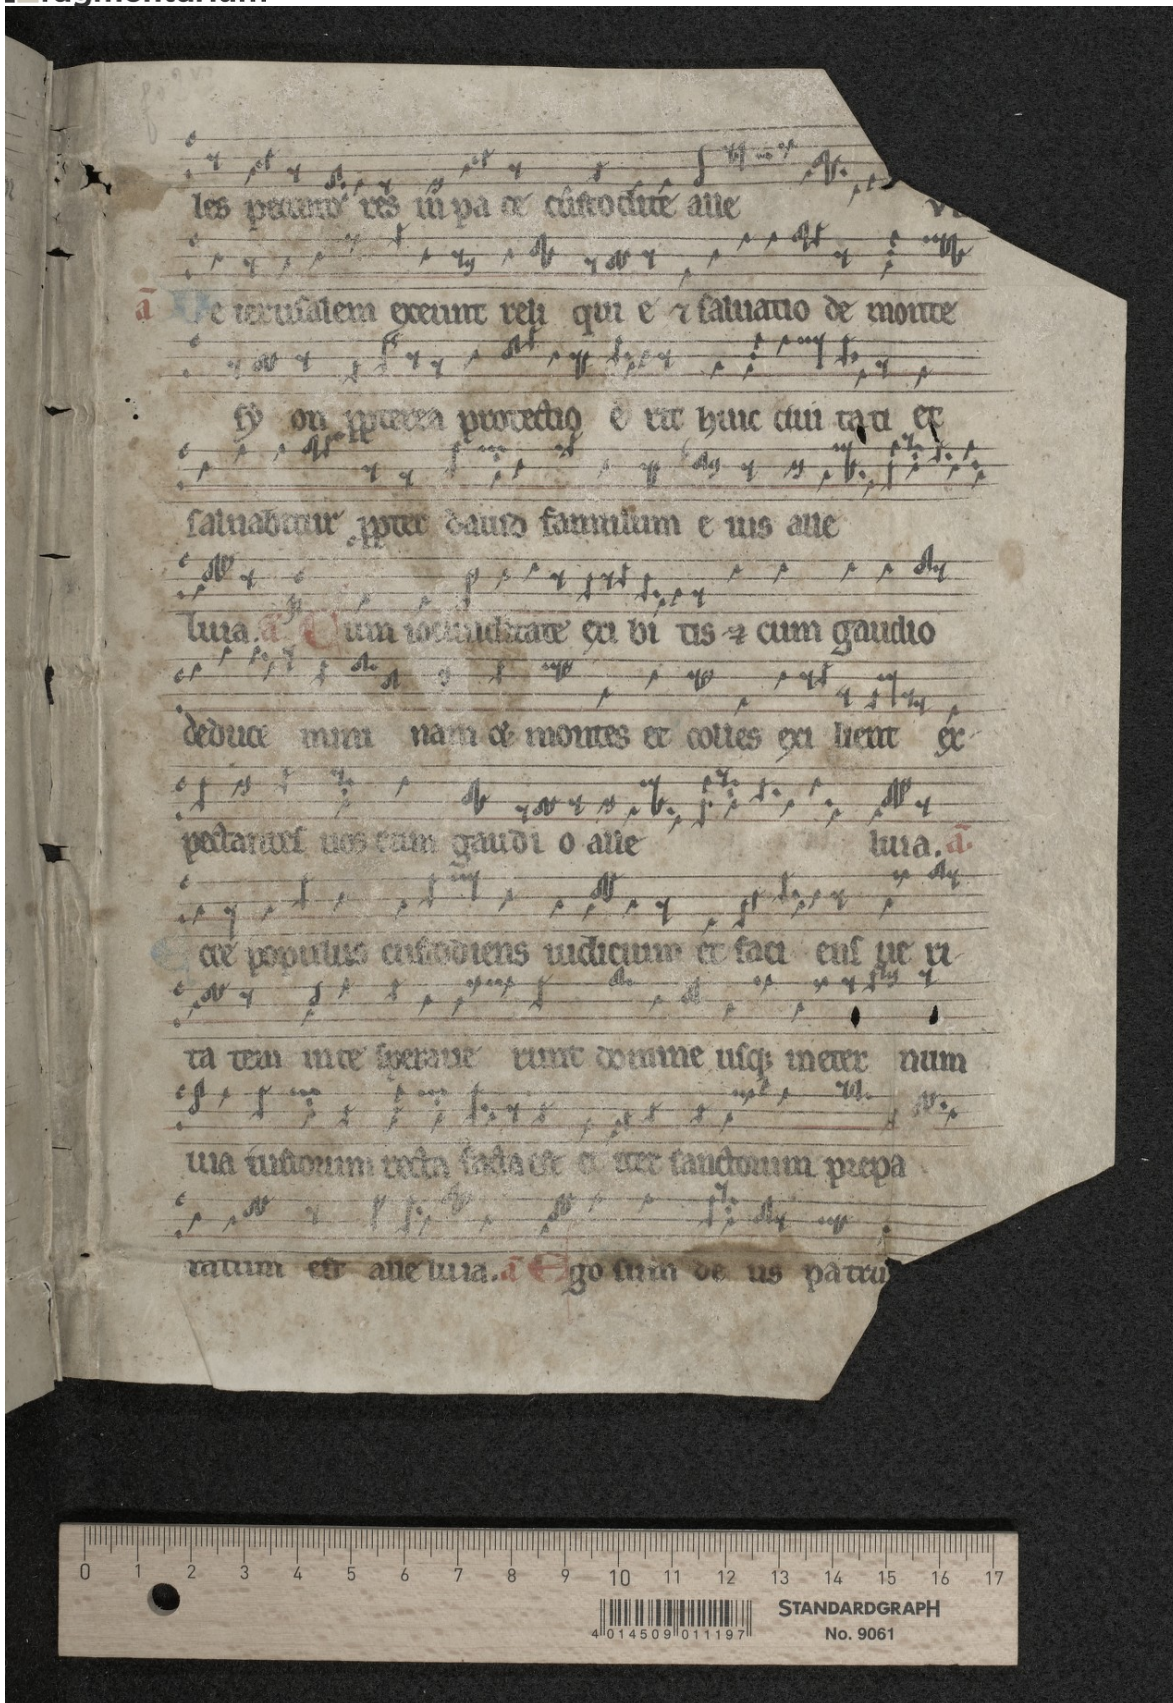 fragmentarium
les peccato res in pa ce custodite alle
ā De ierusalem exeunt reli qui e ⁊ saluatio de monte
sy on ꝓpterea protectio e rit huic ciui tati et
saluabitur ꝓpter dauid famulum e ius alle
luia. ā Cum iocunditate exi bi tis ⁊ cum gaudio
deduce mini nam et montes et colles exi lient ex
pectantes uos cum gaudi o alle luia. ā
Ecce populus custodiens iudicium et faci ens ue ri
ta tem in te speraue runt domine usq; in eter num
uia iustorum recta facta est et iter sanctorum prepa
ratum est alle luia. ā Ego sum de us patru
0 1 2 3 4 5 6 7 8 9 10 11 12 13 14 15 16 17
STANDARDGRAPH
No. 9061
4 014509 011197